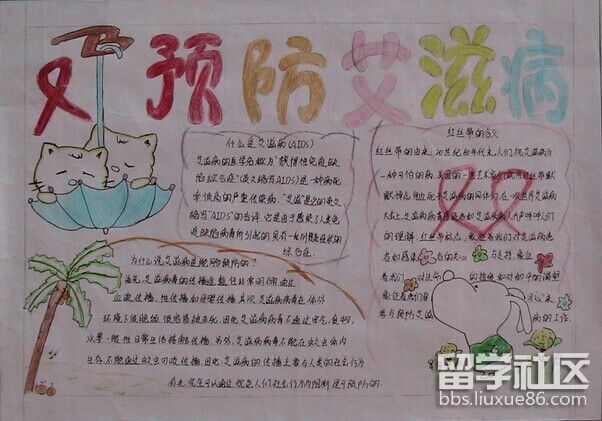 预防艾滋病
什么是艾滋病(AIDS)
艾滋病的医学名称为"获得性免疫缺
陷综合征"(英文缩写AIDS)是一种病死
率极高的严重传染病。"艾滋"是它的英文
缩写"AIDS"的音译。它是由于感染了人类免
疫缺陷病毒所引起的具有一系列
综合征。
红丝带的含义
红丝带的由来:20世纪80年代末,人们视艾滋病为
一种可怕的病,美国的一些艺术家们用红丝带
默悼念他们死于艾滋病的同伴们。在一次世界艾滋病
大会上,艾滋病病毒感染者和艾滋病病人齐声呼吁人们
的理解。
为什么说艾滋病是能够预防的?
首先,艾滋病病毒的传播途径
血液传播、性传播和母婴传播
环境下很脆弱,很容易被杀死。因此艾滋病病毒不通过空气、食物、
水等一般性日常生活接触传播。另外,艾滋病病毒不能在蚊虫体内
生存,不能通过蚊虫叮咬传播。因此,艾滋病的传播主要与人类的社会行为
有关,完全可以通过规范人们社会行为而阻断,是可预防的。
的工作。
留学社区
bbs.liuxue86.com